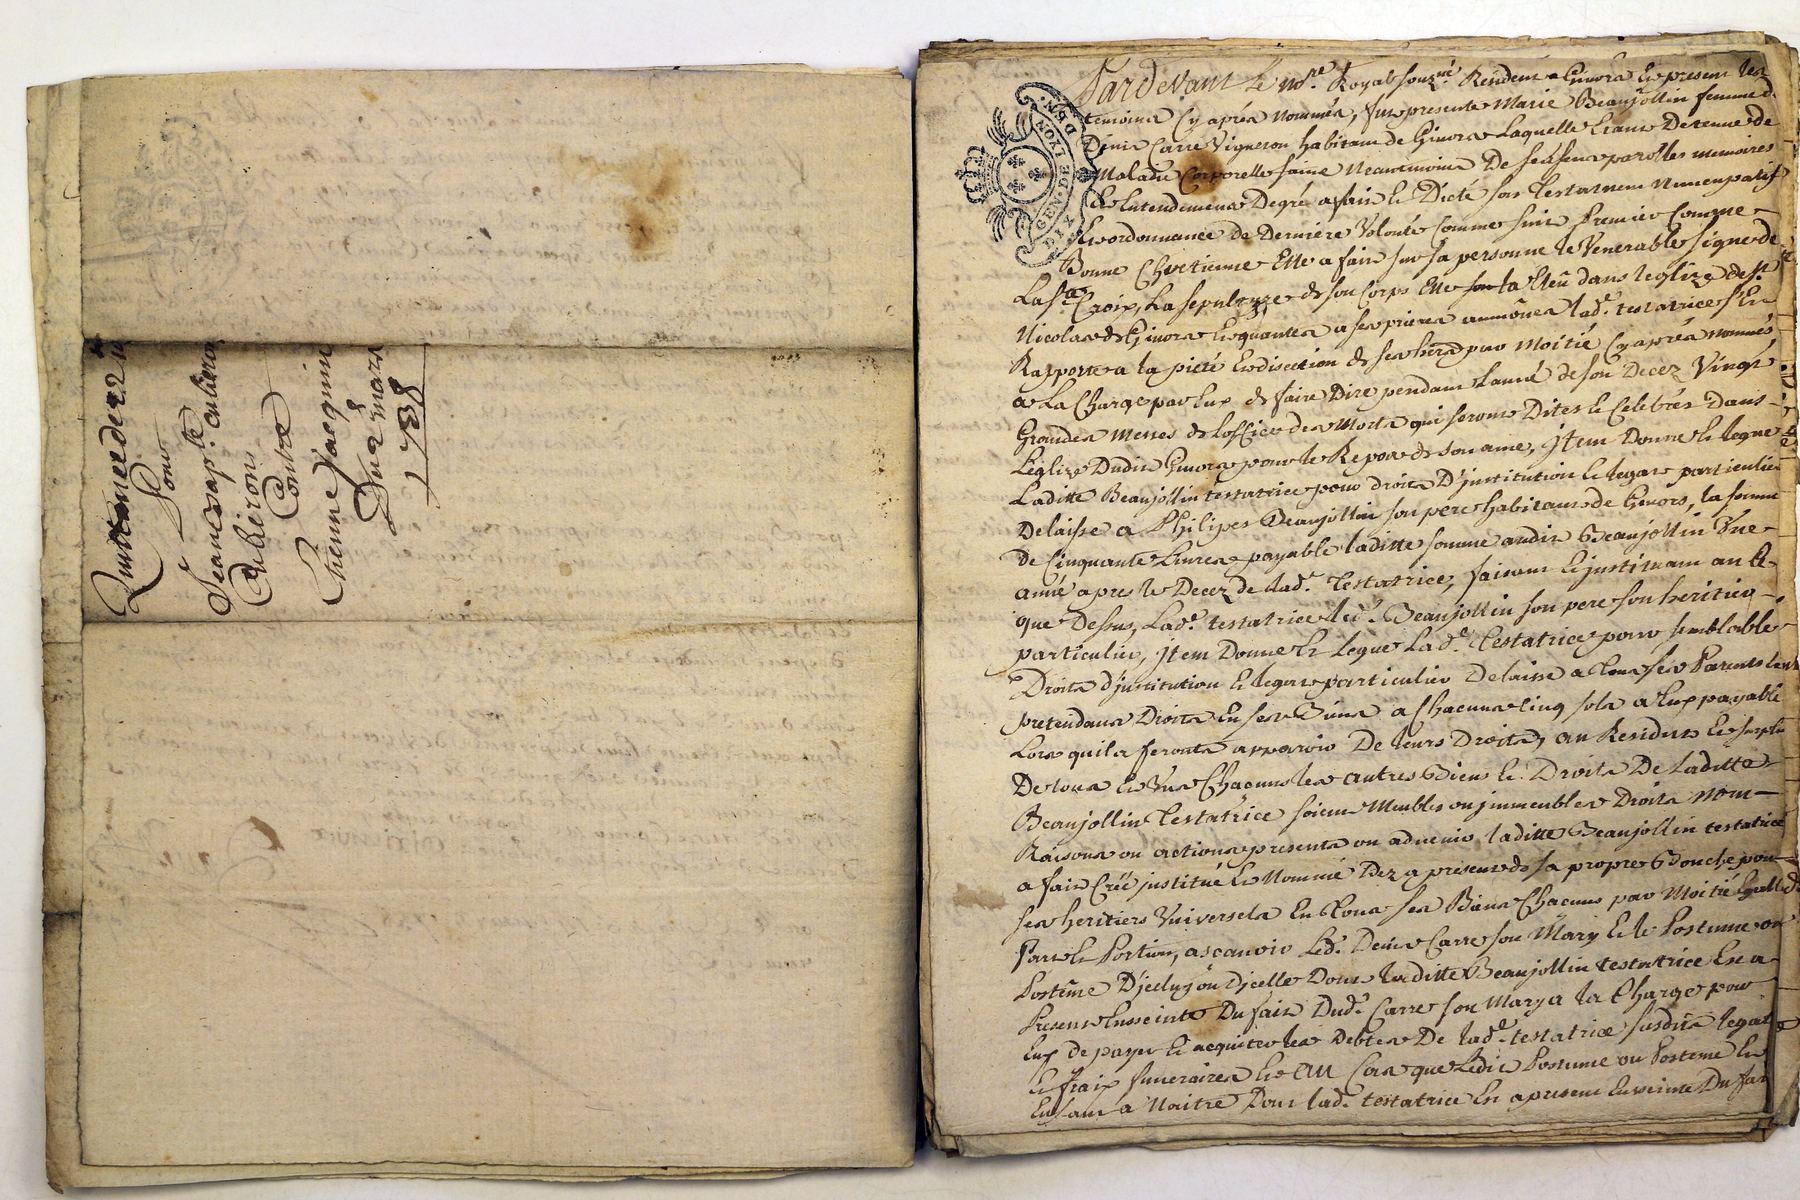 Quittance de 22
Pour
Jean Bap.te Cubieron
Cubieron
Contre
Etienne Jacquin
Du 2e mars
1738
GEN. DE LYON
DIX DEN.
Pardevant le no.re Royal souz.né Residant a Givors Et present les
temoins Cy aprés nommés, fut presente Marie Beaujollin femme d.
Denis Carre Vigneron habitant de Givors Laquelle Etant Detenue de
Maladie Corporelle saine Neantmoins De ses sens parolles memoires
Et Entendement De gré a fait et Dicté son Testament Nuncupatif
Et ordonnance de Derniere Volonté Comme suit Premier Comme
Bonne Chretienne Elle a fait sur sa personne le Venerable signe de
La S.te Croix, La sepulture de son Corps Elle la Eleû dans l'eglize de S.t
Nicolas de Givors Et quant a ses prieres aumônes lad.e testatrice s'En
Rapporte a la pieté Et discretion de ses hers par Moitié Cy aprés nommés
a La Charge par Eux de faire Dire pendant L'anné de son Decez Vingt
Grandes Messes de L'office des Morts qui seront Dites Et Celebrés Dans
L'eglize Dudit Givors pour le Repos de son ame, Jtem Donne Et legue
Laditte Beaujollin testatrice pour droits D'institution Et legat particulier
Delaisse a Philipes Beaujollin son pere habitant de Givors, la somme
de Cinquante Livres payable laditte somme audit Beaujollin Une
anné apres le Decez de lad.e Testatrice, faisant Et instituant au
que Dessus, Lad.e testatrice led.t Beaujollin son pere son heritier
particulier, Jtem Donne Et Legue Lad.e Testatrice pour semblable
Droits d'institution Et legat particulier Delaisse a Tous ses Parents
pretendans Droits En ses Biens a Chacuns Cinq sols a Eux payable
Lors quils feronts apparoir De leurs Droits, au Residus Et surplus
De tous Et Uns Chacuns les autres Biens Et Droits De Laditte
Beaujollin Testatrice soient Meubles ou immeubles Droits Nom
Raisons ou actions presents ou advenir laditte Beaujollin testatrice
a fait Créé institué Et Nommé Dez a present de sa propre Bouche pour
ses heritiers Universels En Tous ses Biens Chacuns par Moitié Egalle
Part Et Portion, ascavoir Led.t Denis Carre son Mary Et le Postume ou
Postûme D'jceluy ou D'jcelle Dont laditte Beaujollin testatrice Est a
Present Ensseinte Du fait Dud.t Carre son Mary a la Charge pour
Eux de payer Et acquiter les Debtes De lad.e testatrice susdits legats
Et fraix funeraires Et au Cas que Ledit Postume ou Posteme Et
Enfant a Naitre Dont lad.e testatrice Est a present Enceinte Du fait